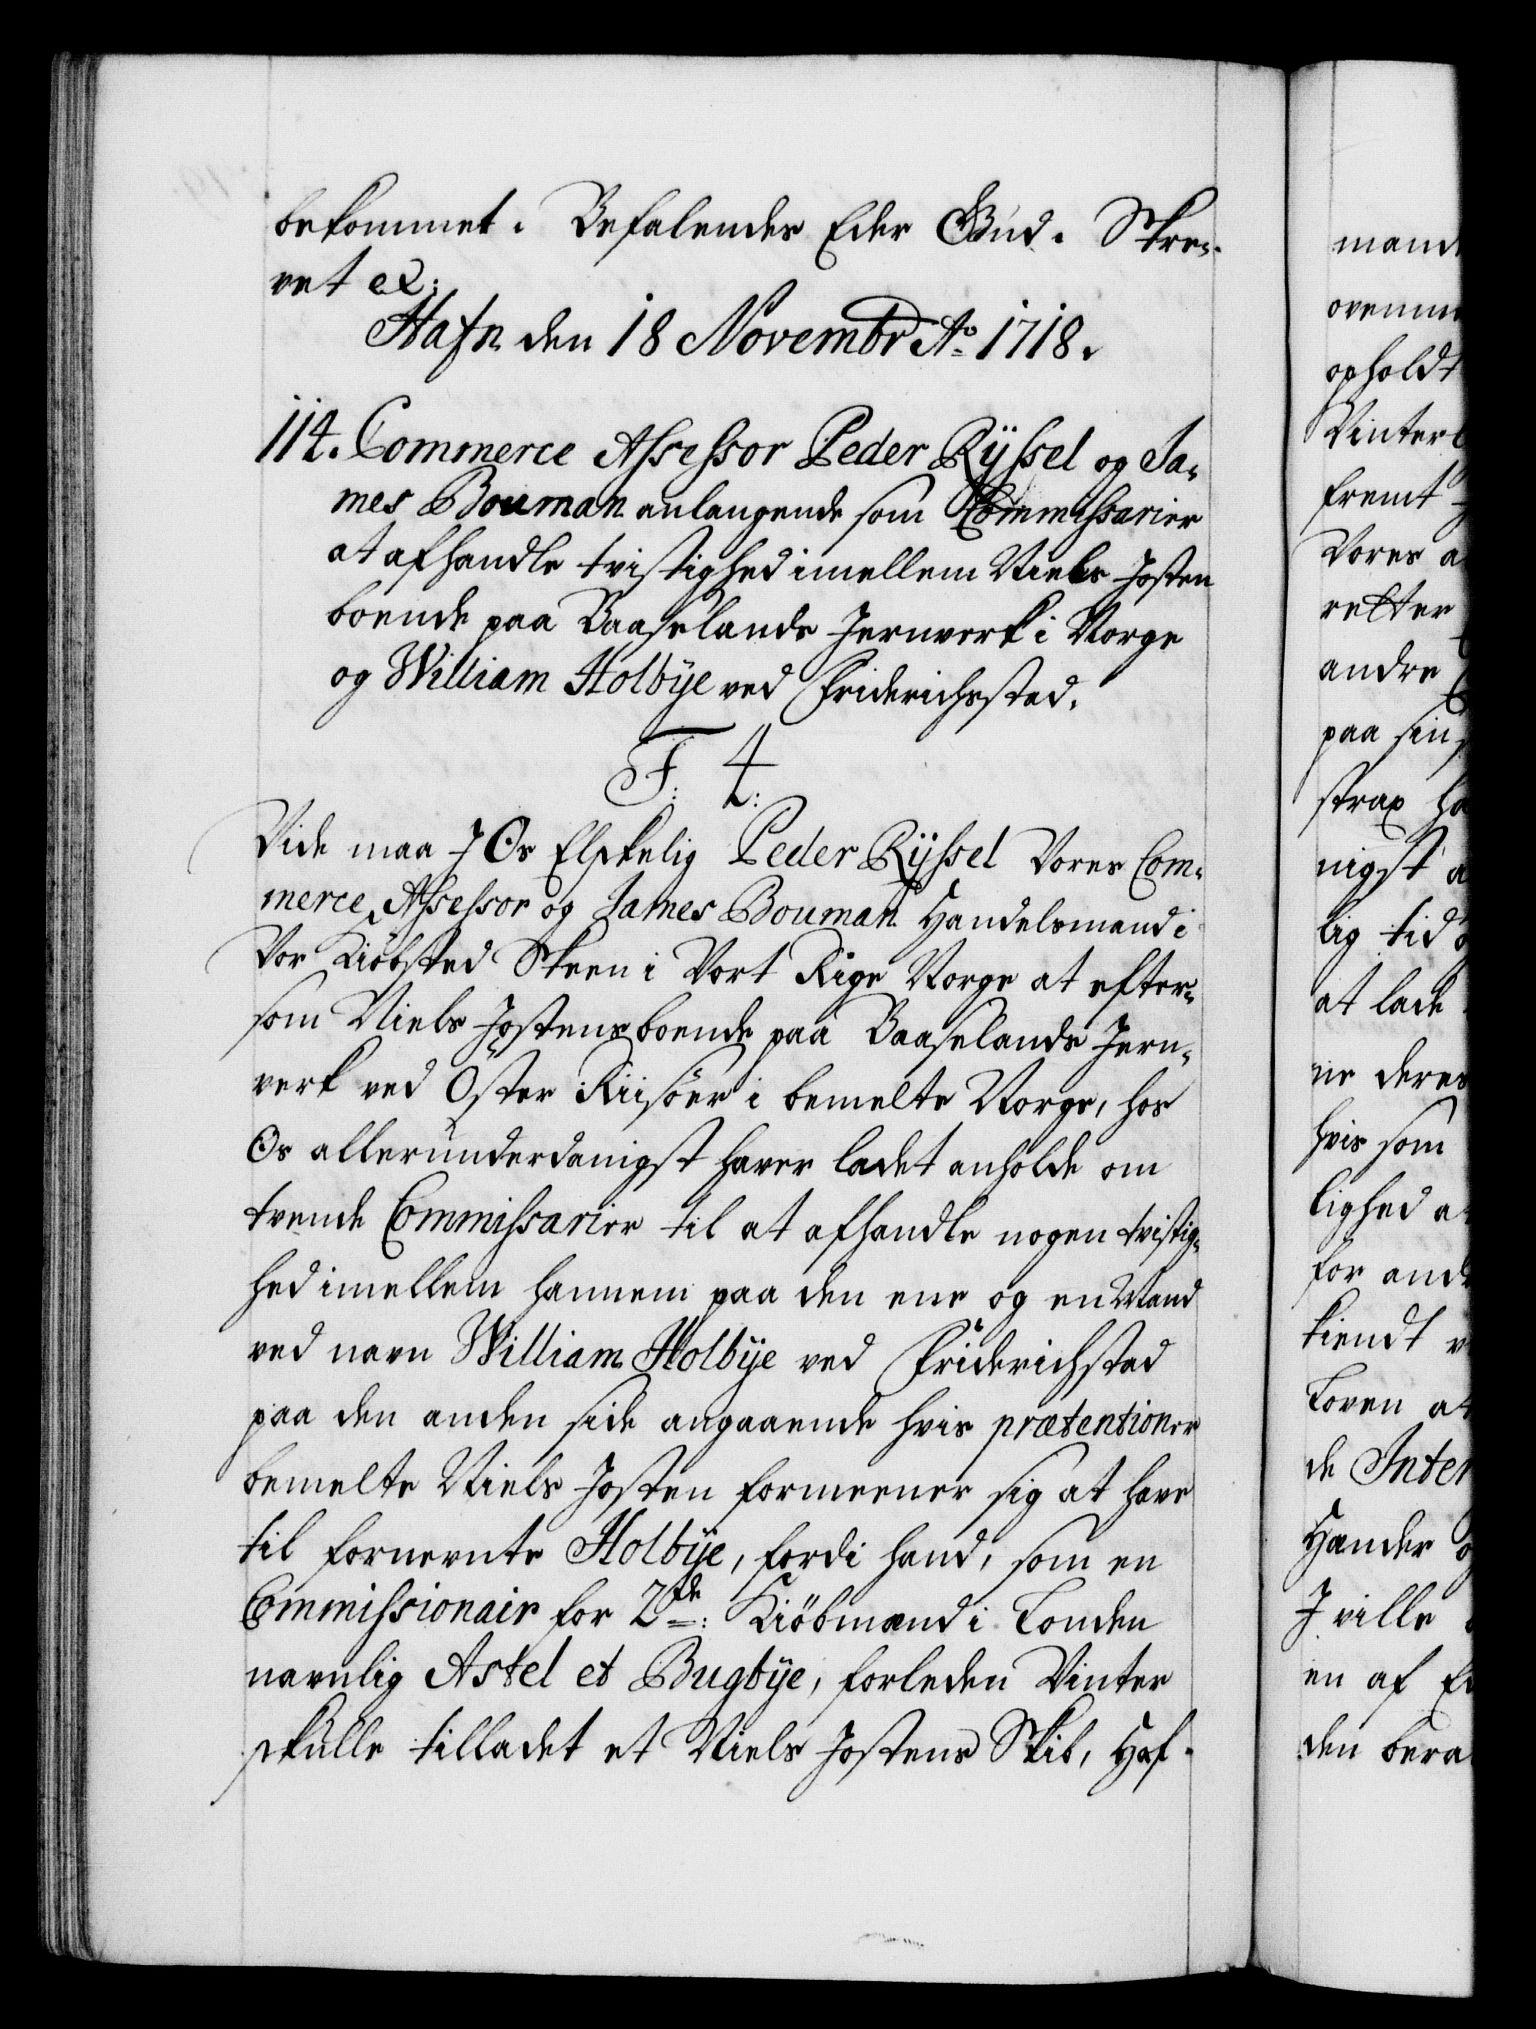 bekommet. Befalendes Eder Gud. Skre-
vet &:
Hafn den 18 Novembr Ao 1718.
114. Commerce Assessor Peder Rÿssel og Ja-
mes Bouman anlangende som Commissarier
at afhandle tvistighed imellem Niels Josten
boende paa Baaselands Jernverk i Norge
og William Holbÿe ved Friderichsstad.
F: 4:
Vide maa I Os Elskelig Peder Rÿssel Vores Com-
merce Assessor og James Bouman Handelsmand i
Vor Kiöbsted Skeen i Vort Rige Norge at efter-
som Niels Jostens boende paa Baaselands Jern-
verk ved Öster Riisöer i bemelte Norge, hos
Os allerunderdanigst haver ladet anholde om
tvende Commissarier til at afhandle nogen tvistig-
hed imellem hannem paa den ene og en Mand
ved navn William Holbÿe ved Friderichstad
paa den anden side angaaende hvis prætentioner
bemelte Niels Josten formeener sig at have
til fornevnte Holbÿe, fordi hand, som en
Commissionair for 2de: Kiöbmænd i Londen
navnlig Astel et Bugbÿe, forleden Vinter
skulle tilladet et Niels Jostens Skib, Haf-
mand
ovenme
opholdt
Vinter
fremt
Vores a
retter
andre
paa sin
strax ha
nigst a
lig tid o
at lade
ne deres
hvis som
lighed at
for and
kiendt v
Loven at
de Inter
Hænder og
I ville
en af E
den bera